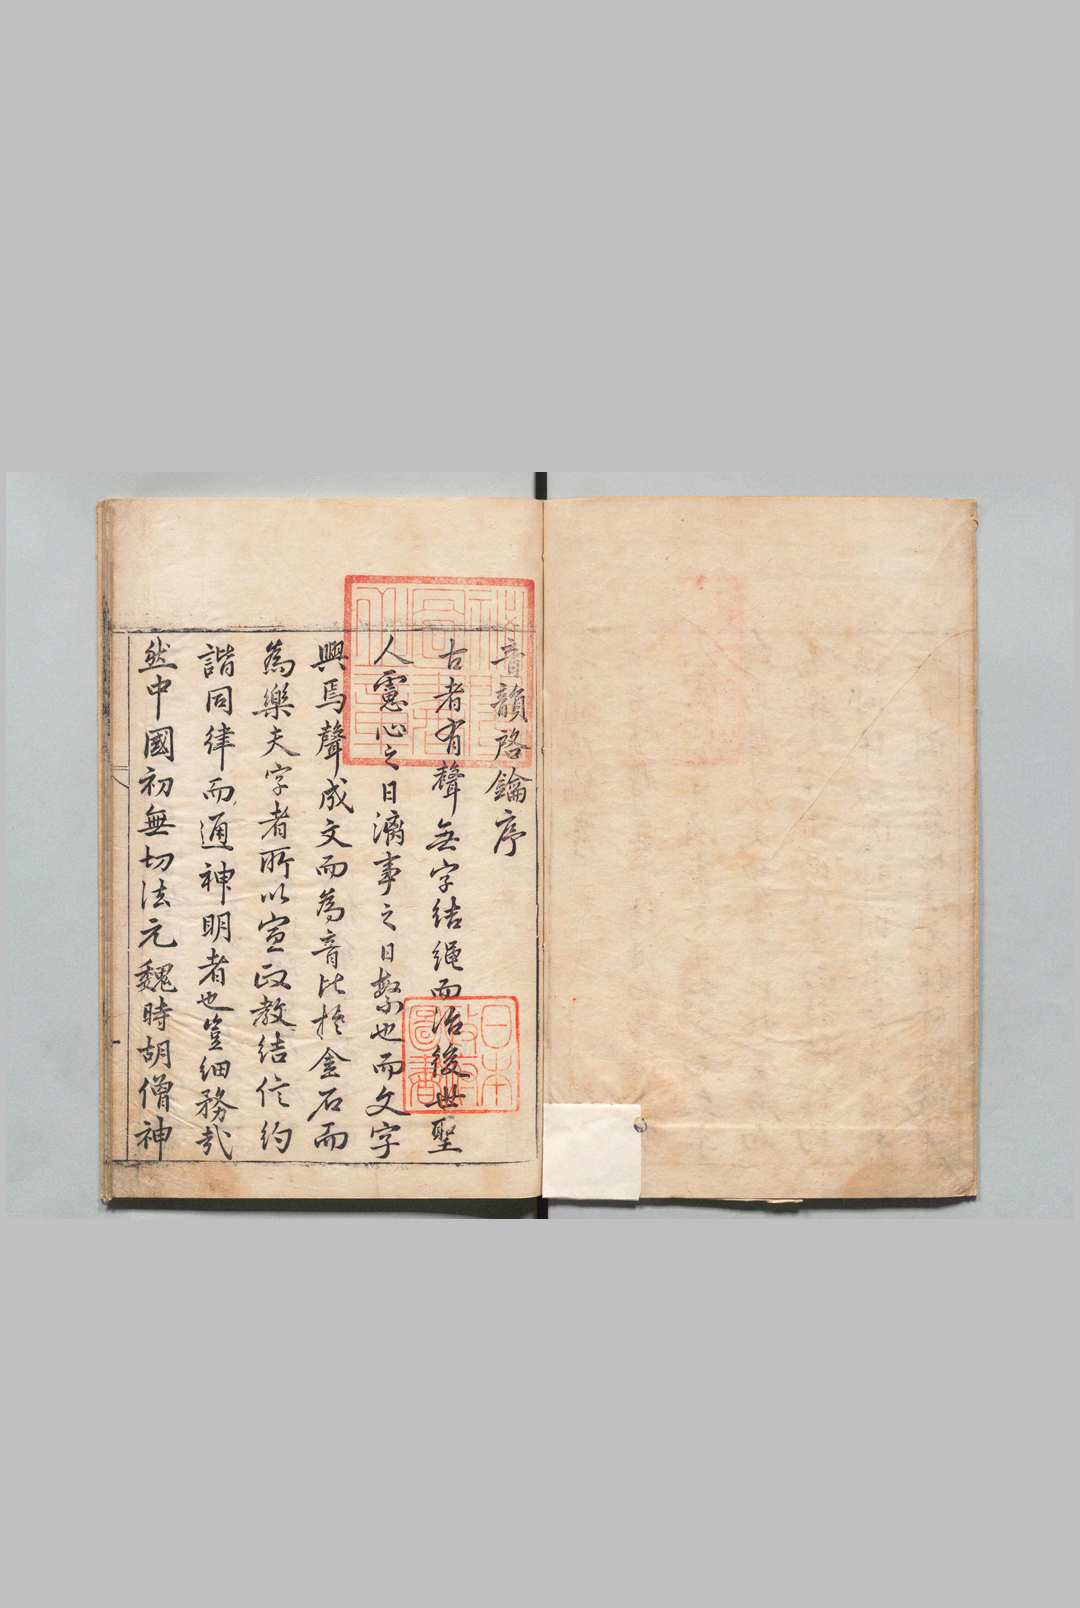 音韻啓鑰序
古者有聲無字結繩而治後世聖
人慮心之日漓事之日繁也而文字
興焉聲成文而為音比於金石而
為樂夫字者所以宣政教結信約
諧同律而通神明者也豈細務哉
然中國初無切法元魏時胡僧神
日本
政府
圖書